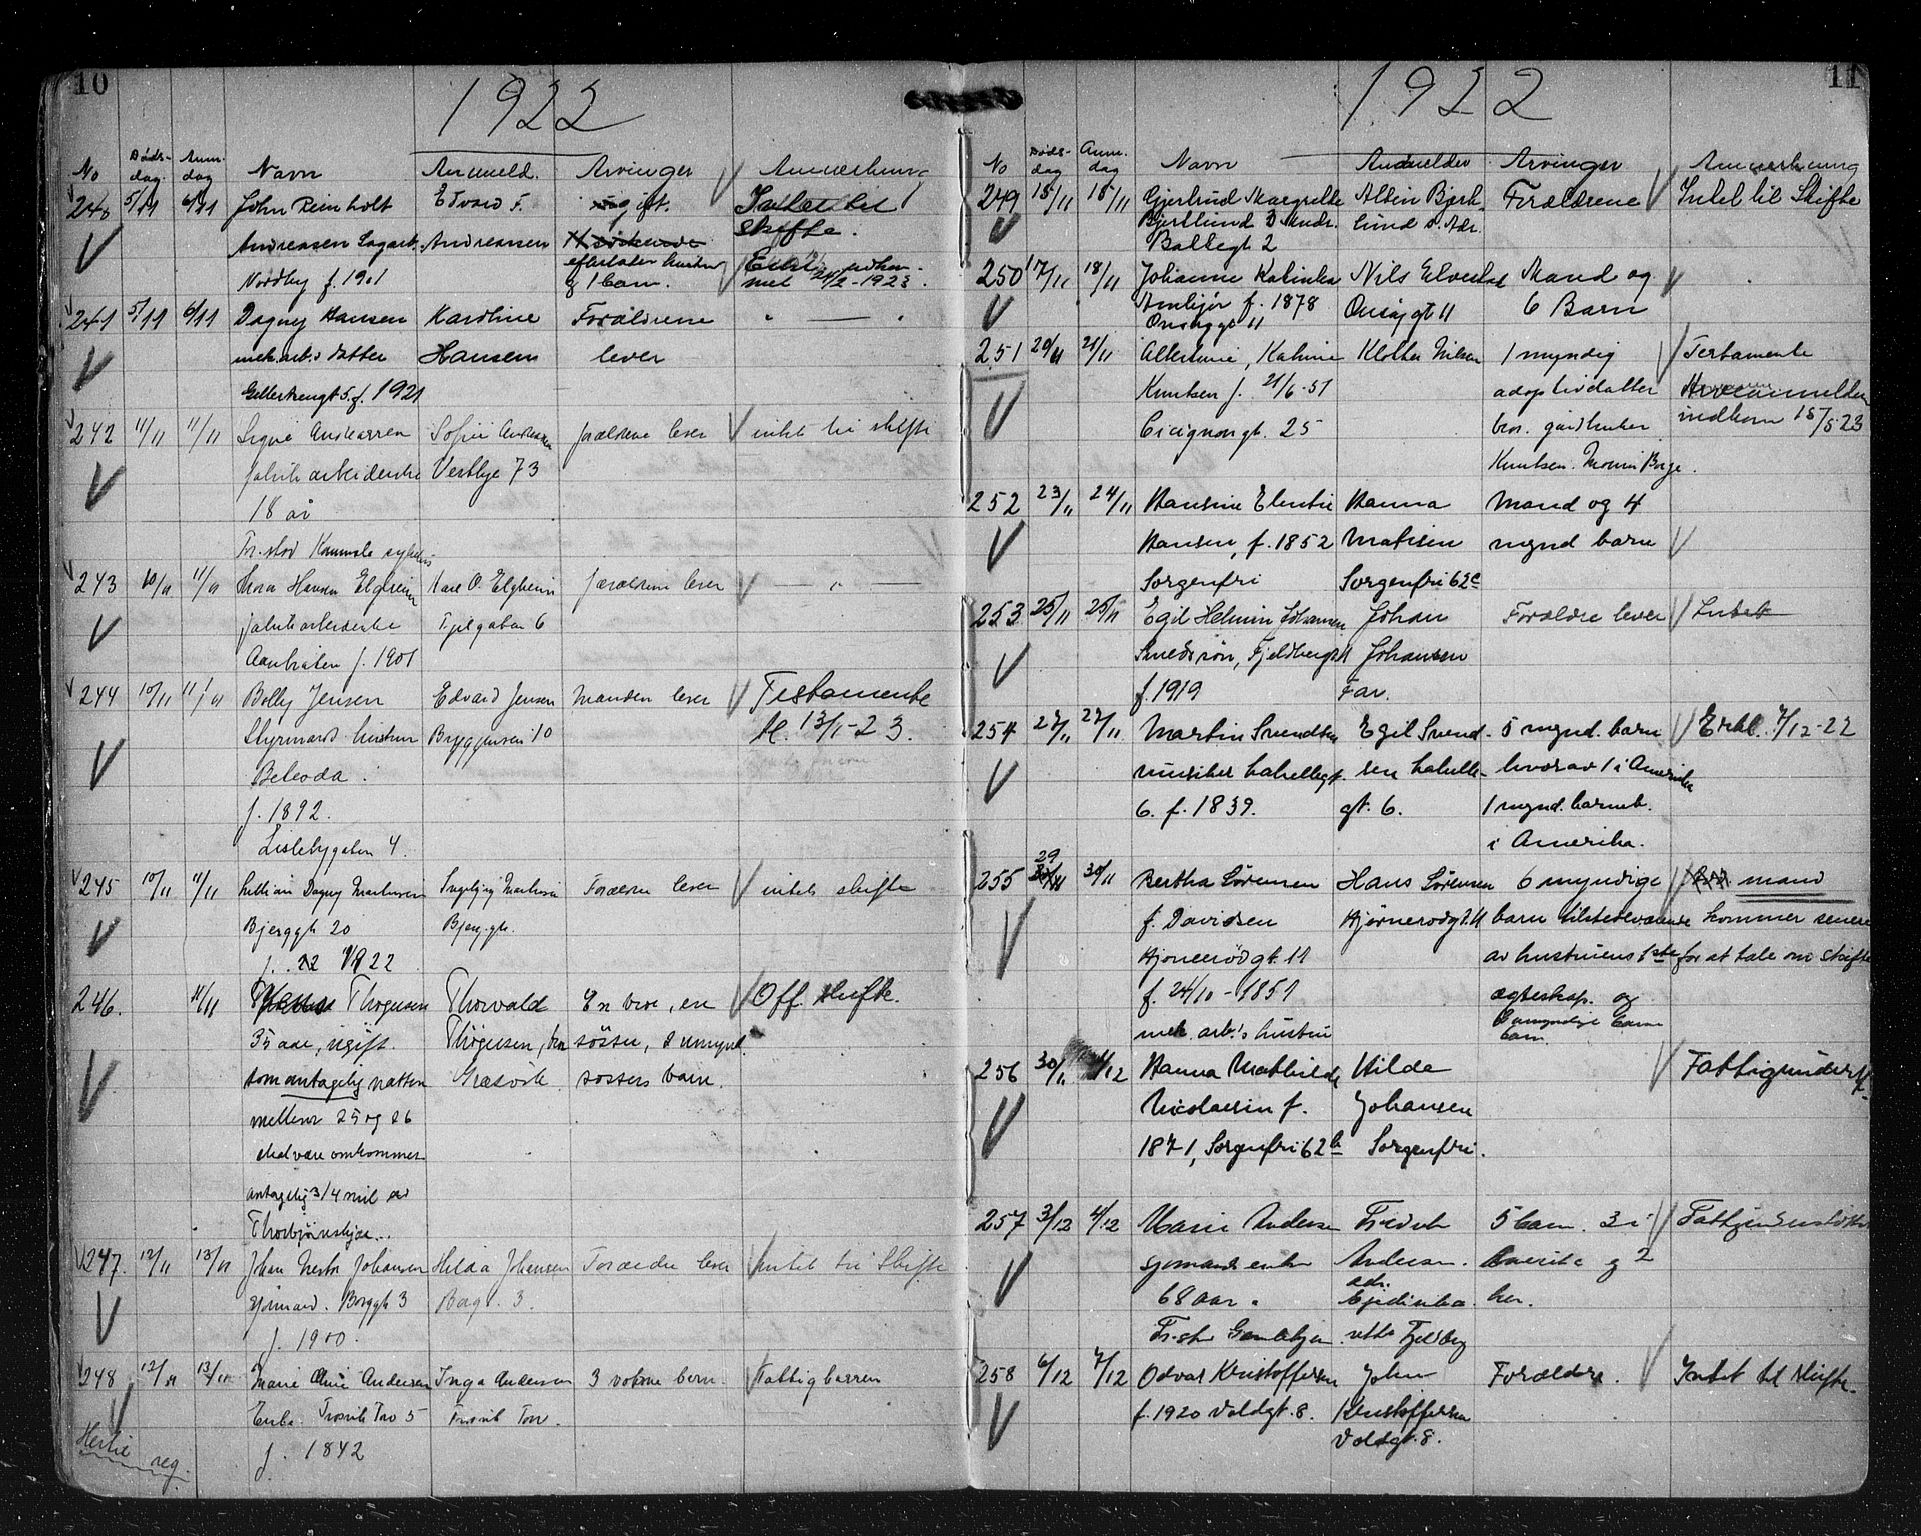 10
1922
No Døds-dag Anm.dag Navn Anmeld. Arvinger Anmærkning
240 5/11 6/11 John Reinholt Edvard F. gift. Intet til
Andreasen Andreassen skifte.
efterlater hustru
Nordby f. 1901 og 1 barn. 1923.
241 5/11 6/11 Dagny Hansen Karoline Forældrene " — "
mek.arb.s datter Hansen lever
5. f. 1921
242 11/11 11/11 Signe Andreassen Sofie Andreassen forældrene lever intet til skifte
fabrikarbeiderske Vestbye 73
18 år
Fr.stad Komm syke
243 10/11 11/11 Hansen Elgheim Karl O. Elgheim forældrene lever — " —
fabrikarbeiderske gaten 6
f. 1901
244 10/11 11/11 Bolly Jensen Edvard Jensen Manden lever Testamente
Styrmands hustru Bryggeveien 10 tl. 13/1-23.
f. 1892.
Lislebygaten 4.
245 10/11 11/11 Dagny Martinsen Ingebjørg Martinsen Forældre lever intet skifte
Bjerggt 20 Bjerggt.
f. 1922
246. 11/11 Thøgersen Thorvald En bror, en Off. skifte.
35 aar, ugift. Thøgersen, bror søster, 2 umynd.
som antagelig natten Græsvik søsters barn.
mellem 25 og 26
skal være omkommet
antagelig 3/4 mil av
Thorbjørnskjær.
247. 12/11 13/11 Johan Johansen Hilda Johansen Forældre lever intet til skifte
sjømand. Borggt 3 Borggt. 3.
f. 1900.
248 12/11 13/11 Marie Andersen Inga Andersen 3 voksne børn Fattigbarren
Enke. Trosvik Torv 5 Trosvik Torv.
f. 1842
reg.
11
1922
No Døds-dag Anm.dag Navn Anmelder Arvinger Anmerkning
249 15/11 15/11 Gjertrud Margrethe Albin Bjerk- Forældrene Intet til Skifte
Bjerklund 3 Mndr. lund s. Adr.
Ballegt 2
250 17/11 18/11 Johanne Katinka Nils Elvestad Mand og
f. 1878 Onsøygt 11 6 Barn
Onsøygt 11
251 20/11 21/11 Albertine, Katrine Klother Nilsen 1 myndig Testamente
Knutsen f. 21/6-51 adoptivdatter
Cicignongt. 25 indkom 15/5 23
Knutsen.
252 23/11 24/11 Hansine Elentie Hanna Mand og 4
Hansen, f. 1852 Matisen mynd barn
Sorgenfri Sorgenfri 62c
253 25/11 25/11 Egil Helmin Johansen Johan Forældre lever Intet
Smedsøn, Fjeldberggt Johansen
f. 1919 Far.
254 27/11 27/11 Martin Svendsen Egil Svend- 5 mynd. barn Erkl. 7/12-22
musiker Labellegt. sen Labelle- hvorav 1 i Amerika
6. f. 1839. gt. 6. 1 mynd. barneb.
i Amerika.
255 29/11 30/11 Bertha Sørensen Hans Sørensen 6 myndige mand
f. Davidsen Hjørnerødgt. 11 barn tilstedeværende kommer senere
Hjørnerødgt. 11 av hustruens 1ste for at tale om skifte
f. 24/10-1851 ægteskap. og
mek. arb.'s hustru barn
256 30/11 1/12 Hanna Mathilde Hilda Fattigunderst.
Nicolaisen f. Johansen
1871, Sorgenfri 62b Sorgenfri.
257 3/12 4/12 Marie Andersen Fredrik 5 barn. 3 i Fattigunderstøtte
sjømands enke Andersen. Amerika og 2
68 aar. adr. her.
Fr.st
258 6/12 7/12 Odvar Kristoffersen John Forældre. Intet til skifte.
f. 1920 Voldgt. 8. Kristoffersen
Voldgt. 8.